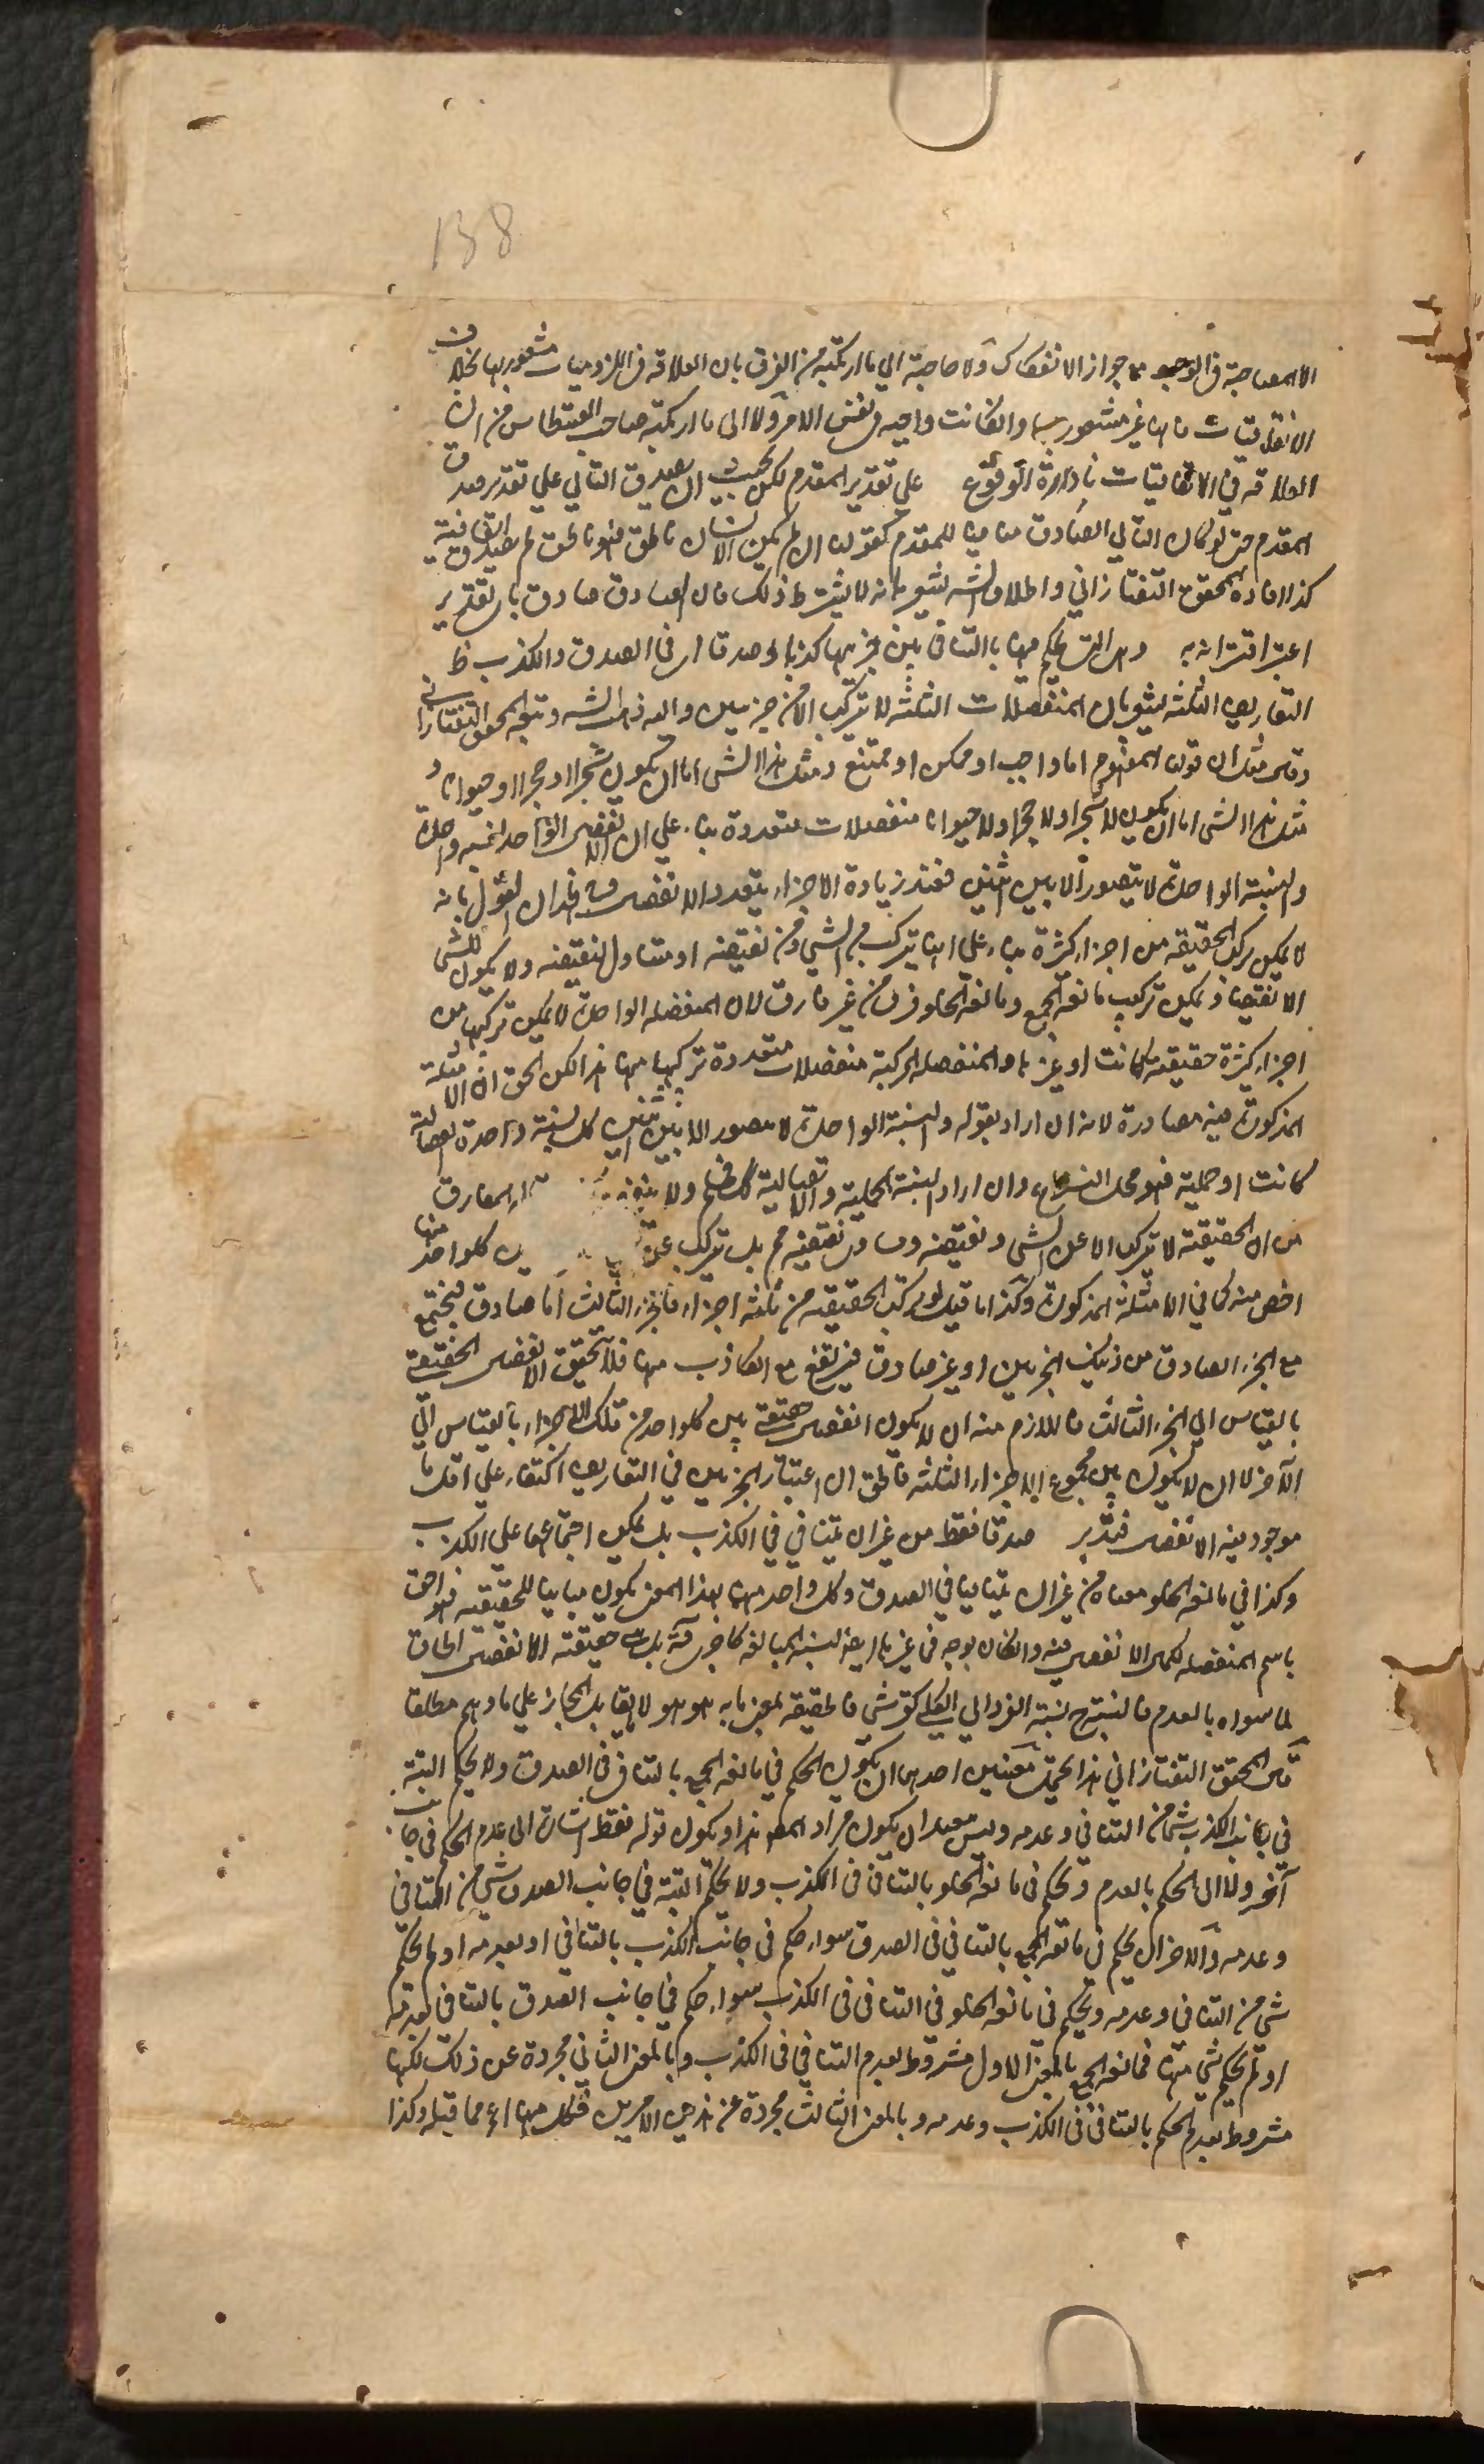 138
الا المصاحبة فى الوجود مع جواز الانفكاك ولا حاجة الى ما ارتكبه من الفرق بان العلاقة فى اللزوميات مشعور بها بخلاف
الاتفاقيات فانها غير مشعور بها وانكانت واجبة فى نفس الامر ولا الى ما ارتكبه صاحب القسطاس من ان
العلاقة فى الاتفاقيات نادرة الوقوع على تقدير المقدم لكن بحيث ان صدق التالي على تقدير صدق
المقدم حتى لو كان التالي الصادق منافيا للمقدم كقولنا ان لم يكن الانسان ناطق فهو ناطق لم يصدق اتفاقية
كذا افاده المحقق التفتازاني واطلاق الشه يشعر بانه لا يشترط ذلك فان الصادق صادق باي تقدير
اعتبر اقترانه به وهى التي يحكم فيها بالتنافى بين جزئيها كذبا وصدقا اى فى الصدق والكذب ظ
التعاريف الثلثة يشعر بان المنفصلات الثلثة لا تتركب الا من جزئين واليه ذهب الشه وتبعه المحقق التفتازانى
وقال مثل ان قولنا المفهوم اما واجب او ممكن او ممتنع ومثل هذا الشى اما ان يكون شجرا او حجرا او حيوانا و
مثل هذا الشى اما ان يكون لا شجرا ولا حجرا ولا حيوانا منفصلات متعددة بناء على ان الانفصال الواحد نسبة واحدة
والنسبة الواحدة لا يتصور الا بين اثنين فعند زيادة الاجزاء يتعدد الانفصال فى ان القول بانه
لا يمكن تركب الحقيقة من اجزاء كثيرة بناء على انها يتركب من الشي ومن نقيضه او مساو لنقيضه ولا يكون للشى
الا نقيضا و يمكن تركب مانعة الجمع ومانعة الخلو فرق من غير فارق لان المنفصلة الواحدة لا يمكن تركبها من
اجزاء كثيرة حقيقة كانت او غيرها والمنفصلة المركبة منفصلات متعددة تركبها منها هذا لكن الحق ان الامثلة
المذكورة فيه مصادرة لانه ان اراد بقوله والنسبة الواحدة لا يتصور الا بين اثنين كل نسبة واحدة اتصالية
كانت او حملية فهو محل النزاع وان اراد النسبة الحملية والاتصالية فمسلم ولا الفارق
من ان الحقيقة لا يتركب الا عن الشى ونقيضه ومساوى نقيضه مم بل يتركب عن كلواحد منها
اخص منه كما فى الامثلة المذكورة وكذا ما قيل لو تركب الحقيقة من ثلثة اجزاء فالجزء الثالث اما صادق فيجتمع
مع الجزء الصادق من ذينك الجزئين او غير صادق فيرتفع مع الكاذب منها فلا يتحقق الانفصال الحقيقي
بالقياس الى الجزء الثالث فاللازم منه ان لا يكون انفصال حقيقي بين كلواحد من تلك الاجزاء بالقياس الى
الآخر لا ان لا يكون بين مجموع الاجزاء الثلثة فالحق ان اعتبار الجزئين فى التعاريف اكتفاء على اقل ما
يوجد فيه الانفصال فتدبر صدقا فقط من غير ان يتنافى فى الكذب بل يمكن اجتماعهما على الكذب
وكذا فى مانعة الخلو معناه من غير ان يتنافيا فى الصدق وكل واحد منهما بهذا المعنى يكون مباينا للحقيقة فهو احق
باسم المنفصلة لكمال الانفصال فيه وان كان يوجد فى غيرها ايضا لنسبة المبالغة كما فى بل هى حقيقة الانفصال الحاق
لما سواه بالعدم فالنسبة ح نسبة الفرد الى الكلى كقرشى فالحقيقة بمعنى ما به هو هو لا ما يقابل المجاز على ما وهم مطلقا
قال المحقق التفتازاني هذا يحتمل معنيين احدهما ان يكون الحكم فى مانعة الجمع بالتنافى فى الصدق ولا يحكم البتة
فى جانب الكذب بشى من التنافى وعدمه وليس ببعيد ان يكون مراد المصه هذا ويكون قوله فقط اشارة الى عدم الحكم فى جانب
آخر ولا الى الحكم بالعدم ويحكم فى مانعة الخلو بالتنافى فى الكذب ولا يحكم البتة فى جانب الصدق بشى من التنافى
وعدمه والاخر ان يحكم فى مانعة الجمع بالتنافى فى الصدق سواء حكم فى جانب الكذب بالتنافى او بعدمه او لم يحكم
بشى من التنافى وعدمه ويحكم فى مانعة الخلو فى التنافى فى الكذب سواء حكم فى جانب الصدق بالتنافى او بعدمه
او لم يحكم بشى منها فمانعة الجمع بالمعنى الاول مشروط بعدم التنافى فى الكذب وبالمعنى الثانى مجردة عن ذلك لكنها
مشروط بعدم الحكم بالتنافى فى الكذب وعدمه وبالمعنى الثالث مجردة عن هذين الامرين فكل منها اعم مما قبله وكذا